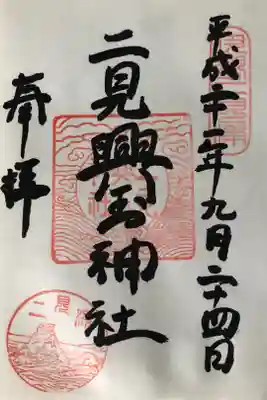 平成二十一年九月二十四日
二見興玉神社
奉拝
二見浦